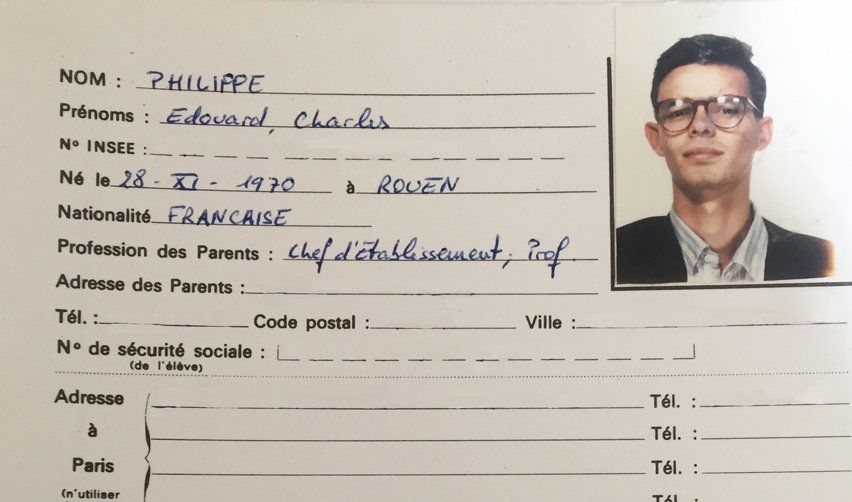 NOM : PHILIPPE
Prénoms : Edouard, Charles
Nº INSEE :
Né le 28 - XI - 1970 à ROUEN
Nationalité FRANCAISE
Profession des Parents : Chef d'Etablissement, Prof
Adresse des Parents :
Tél. : Code postal : Ville :
Nº de sécurité sociale :
(de l'élève)
Adresse Tél. :
à Tél. :
Paris Tél. :
(n'utiliser Tél. :